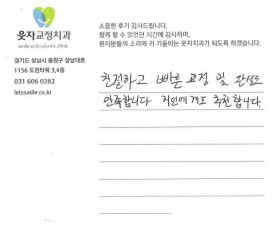 웃자교정치과
경기도 성남시 중원구 성남대로
1156 도원타워 3,4층
031 606 0282
letssmile.co.kr
소중한 후기 감사드립니다.
함께 할 수 있었던 시간에 감사하며,
환자분들의 소리에 귀 기울이는 웃자치과가 되도록 하겠습니다.
친절하고 빠른 교정 및 완성도
만족합니다 지인에게도 추천합니다